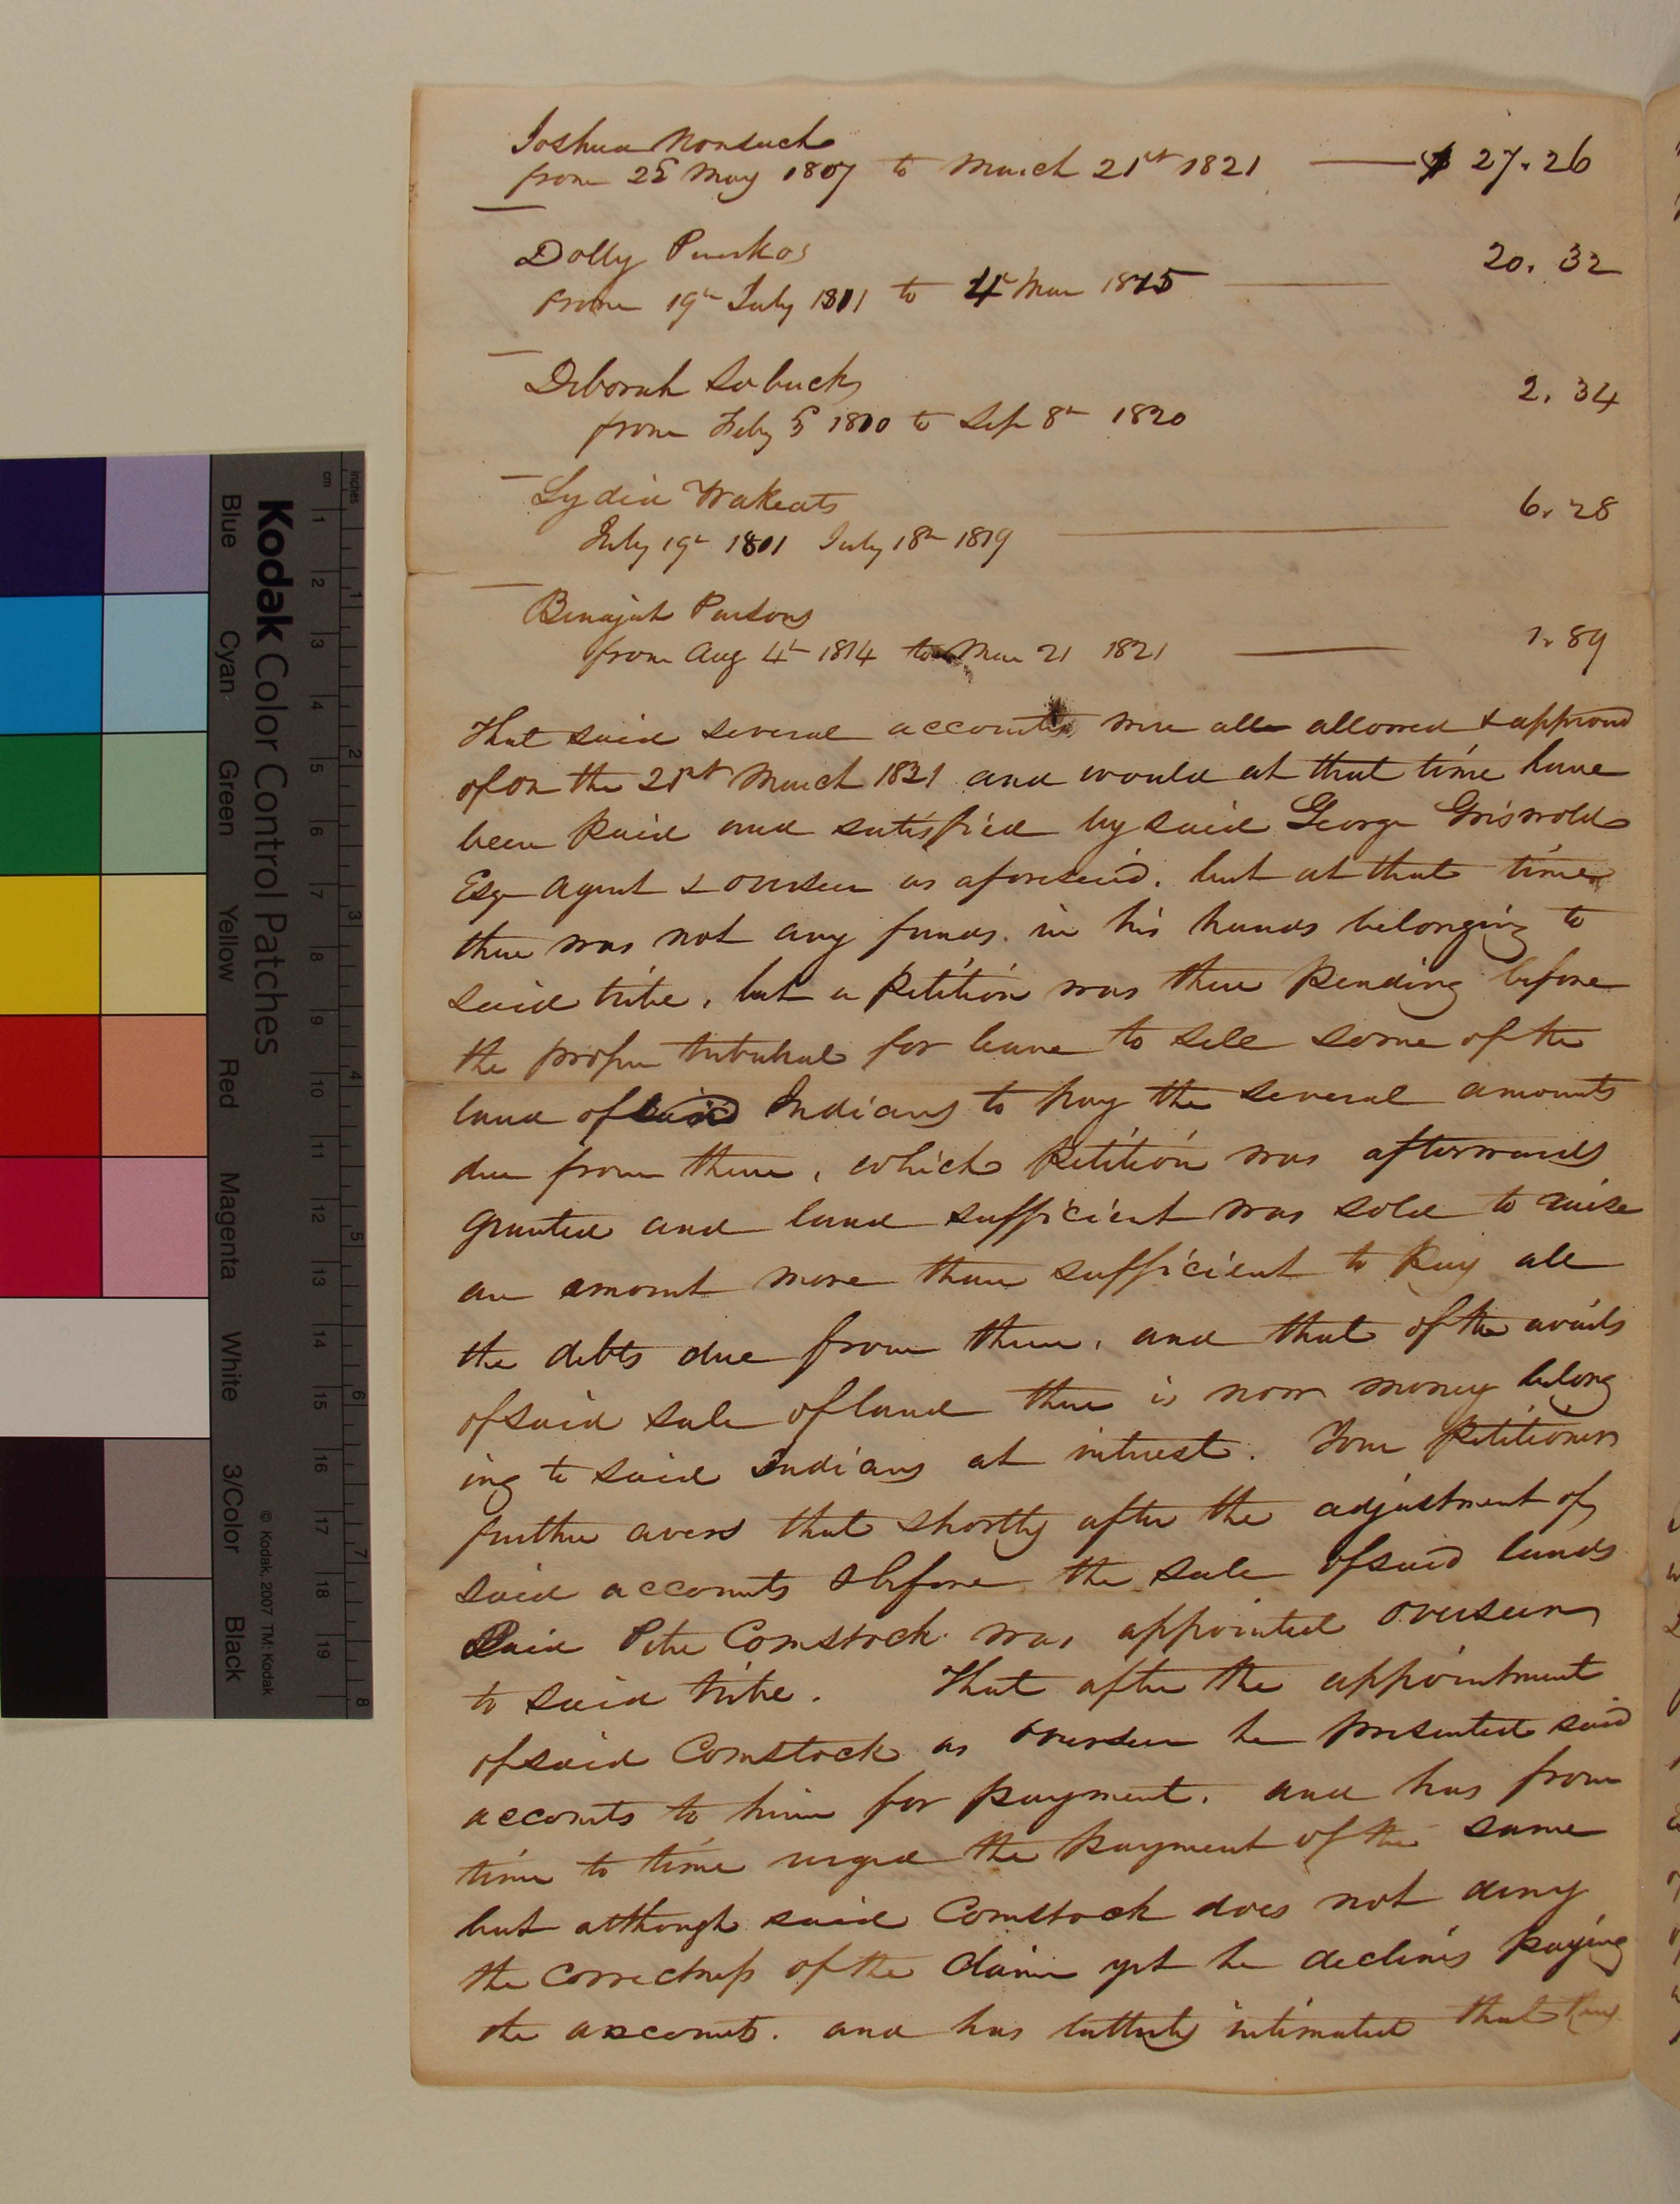 Joshua Nonsuch
from 25 May 1807 to March 21st 1821 $ 27.26
Dolly
from 19th July 1811 to 4th Mar 1815 20.32
Deborah Sobuck
from Feby 5 1810 to Sep 8th 1820 2.34
Lydia Wakeats 6.28
July 19th 1801 July 18th 1819
Benajah Parsons
from Aug 4th 1814 to Mar 21 1821 1.89
That said several accounts were all allowed & approved
of on the 21st March 1821 and would at that time have
been paid and satisfied by said George Griswold
Esqr Agent & overseer as aforesaid. but at that time
there was not any funds in his hands belonging to
said tribe, but a petition was then pending before
the proper tribunal for leave to sell some of the
land of said Indians to pay the several amounts
due from them, which petition was afterwards
granted and land sufficient was sold to raise
an amount more than sufficient to pay all
the debts due from them, and that of the avails
of said sale of land there is now money belong
ing to said Indians at interest. Your petitioner
further avers that shortly after the adjustment of
said accounts & before the sale of said lands
Said Peter Comstock was appointed overseer
to said tribe. That after the appointment
of said Comstock as overseer he presented said
accounts to him for payment. and has from
time to time urged the payment of the same
but although said Comstock does not deny
the correctness of the claim yet he declines paying
the accounts. and has latterly intimated that they
Kodak Color Control Patches
Blue Cyan Green Yellow Red Magenta White 3/Color Black
© Kodak, 2007 TM: Kodak
inches 1 2 3 4 5 6 7 8
cm 1 2 3 4 5 6 7 8 9 10 11 12 13 14 15 16 17 18 19